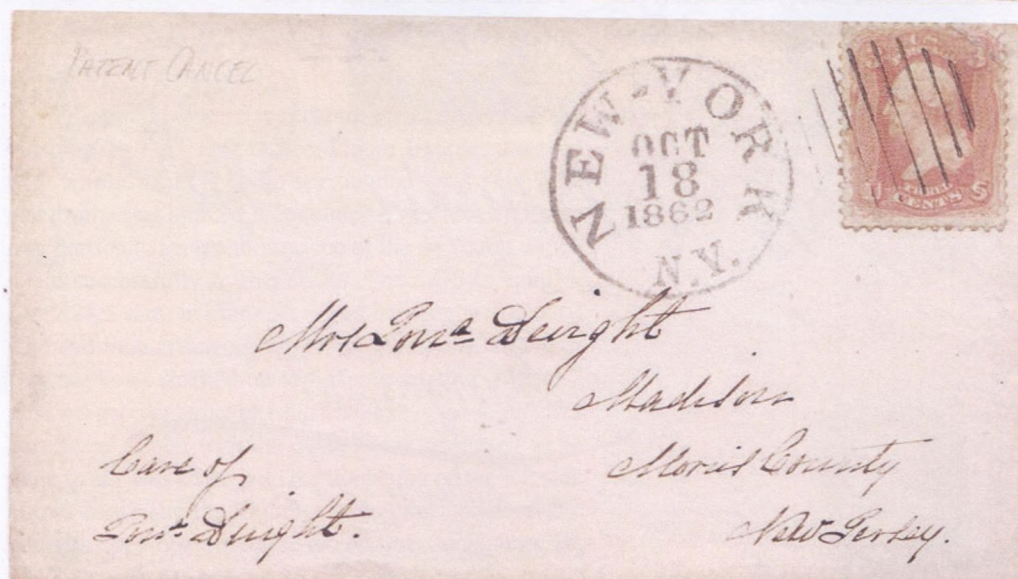 PATENT CANCEL
NEW-YORK
OCT
18
1862
N.Y.
U THREE S
CENTS
Mrs Jona Dwight
Madison
Morris County
New Jersey.
Care of
Jona Dwight.